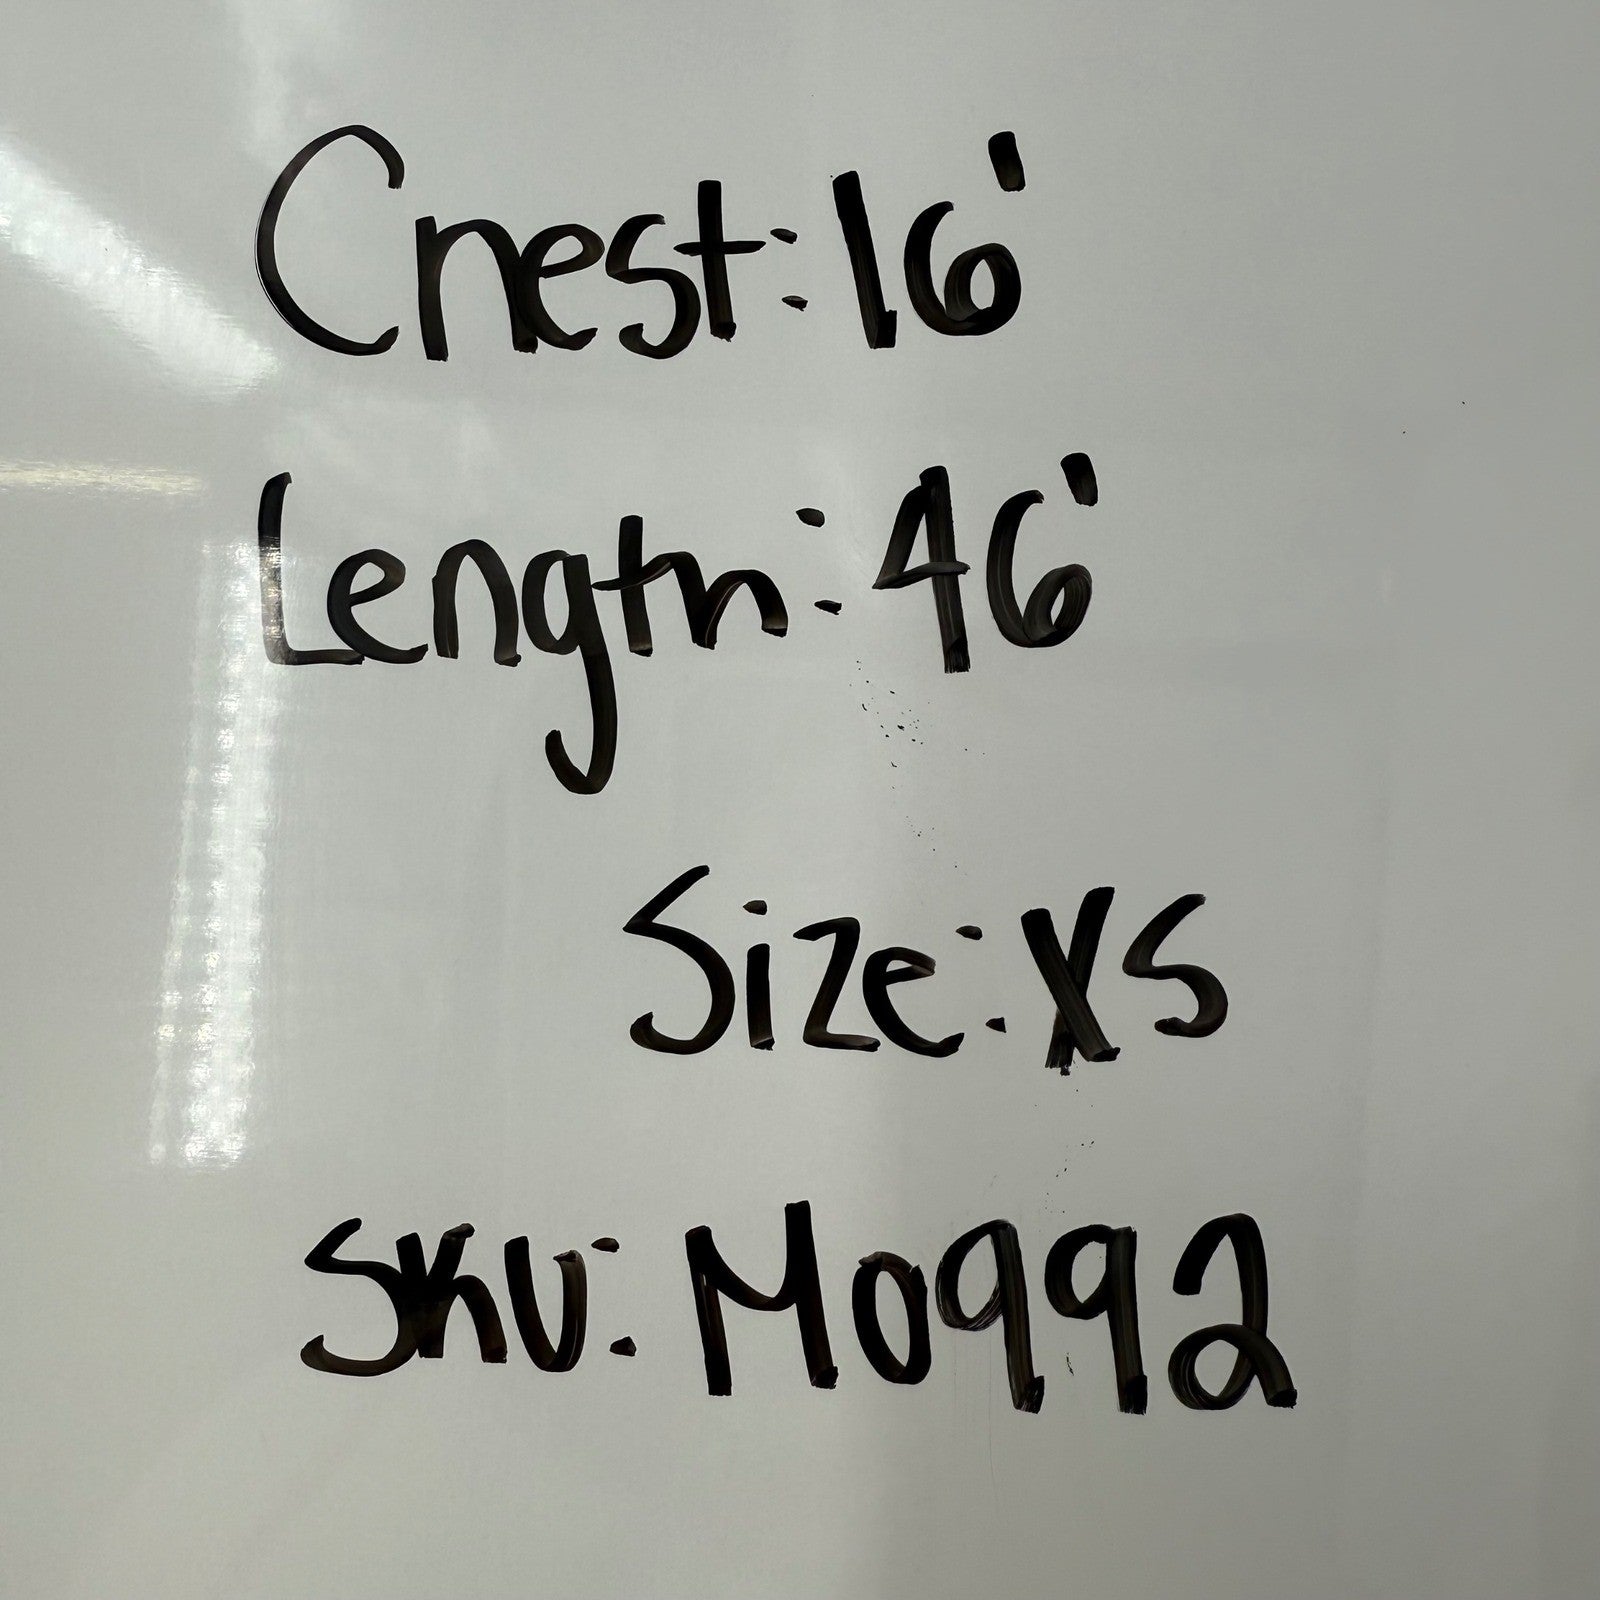 Chest: 16'
Length: 46'
Size: XS
SKU: M0992